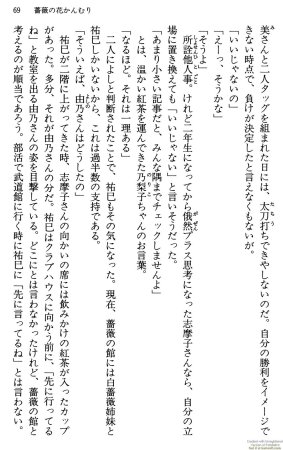 69　薔薇の花かんむり
美さんと二人タッグを組まれた日には、太刀打ちできやしないのだ。自分の勝利をイメージで
きない時点で、負けが決定したと言えなくもないが。
「いいじゃないの」
「えーっ、そうかな」
「そうよ」
所詮他人事。けれど二年生になってから俄然プラス思考になった志摩子さんなら、自分の立
場に置き換えても「いいじゃない」と言いそうだった。
「あまり小さい記事だと、みんな隅までチェックしませんよ」
とは、温かい紅茶を運んできた乃梨子ちゃんのお言葉。
「なるほど。それは一理ある」
二人によしと判断されたことで、祐巳もその気になった。現在、薔薇の館には白薔薇姉妹と
祐巳しかいないから、これは過半数の支持である。
「そういえば、由乃さんはどうしたの」
祐巳が二階に上がってきた時、志摩子さんの向かいの席には飲みかけの紅茶が入ったカップ
があった。多分、それが由乃さんの分だ。祐巳はクラブハウスに向かう前に、「先に行ってる
ね」と教室を出る由乃さんの姿を目撃している。どこにとは言わなかったけれど、薔薇の館と
考えるのが順当であろう。部活で武道館に行く時に祐巳に「先に行ってるね」とは言わない。